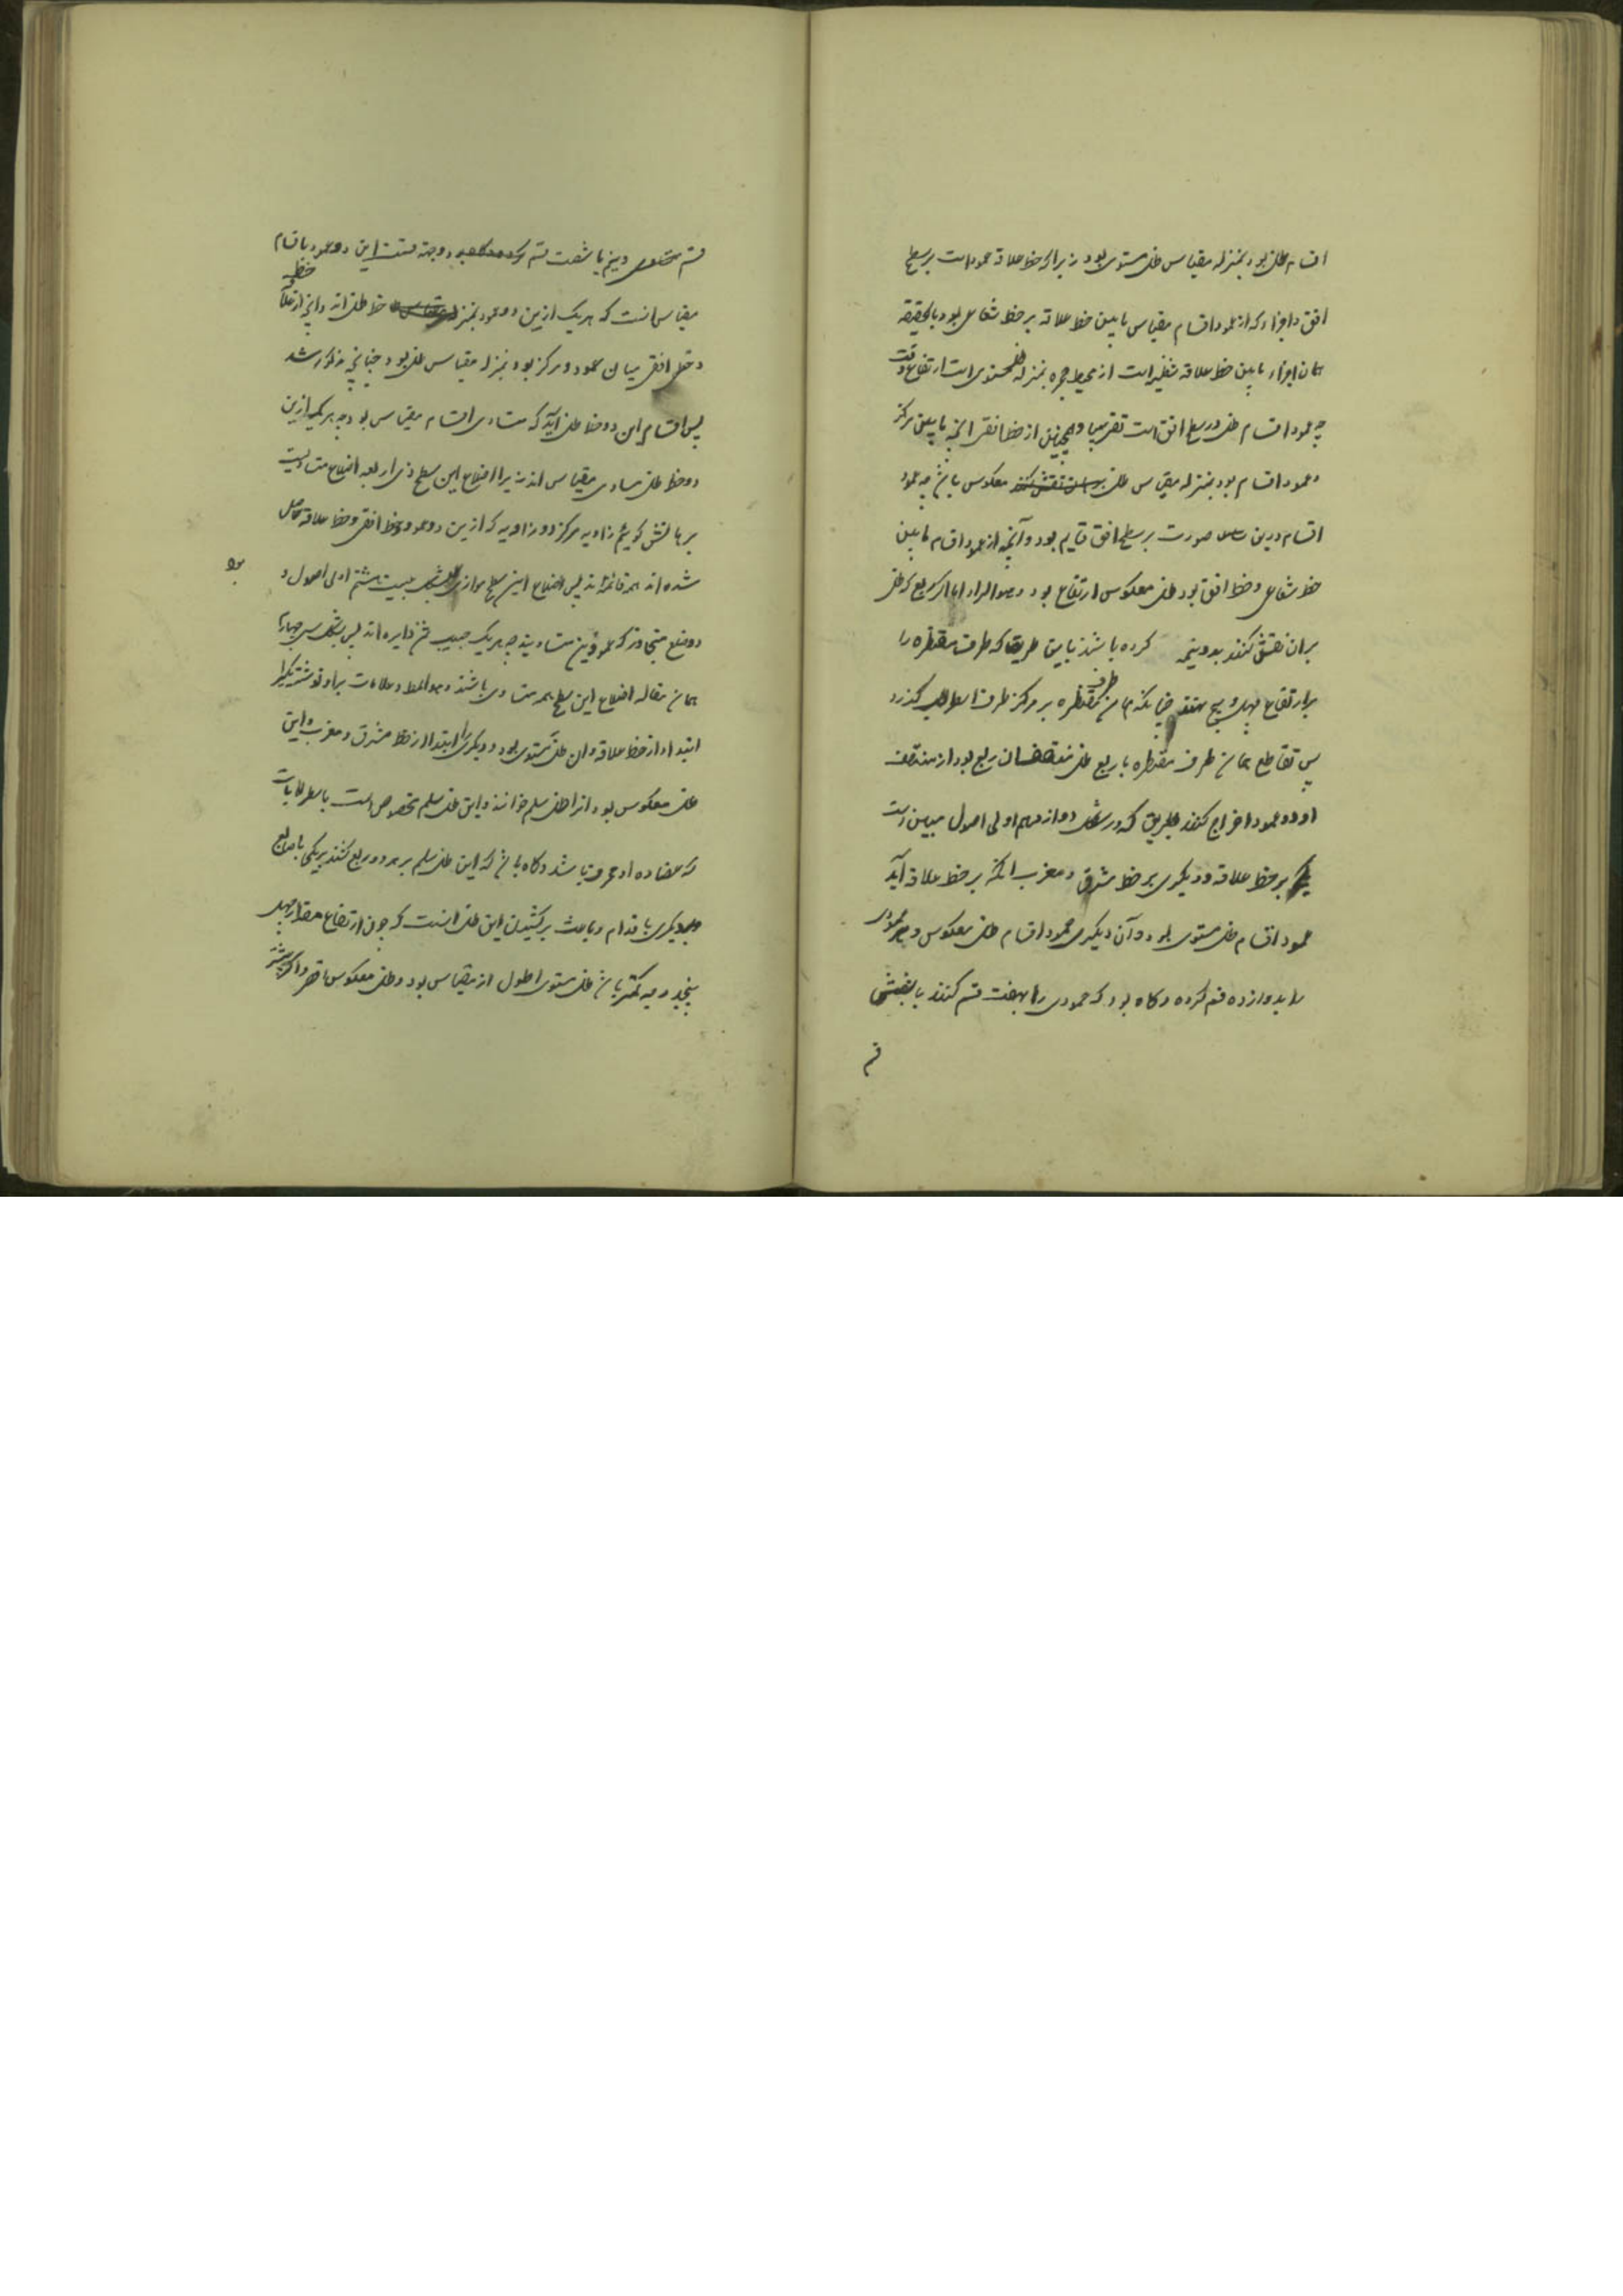 اقسام ظل بود بمنزله مقیاس ظل مستوی بود زیرا که خط علاقه عمود است بر سطح
افق و اجزاء که از عمود اقسام مقیاس مابین خط علاقه بر خط شعاعی بود بالحقیقه
همان اجزاء مابین خط علاقه شظیه است از محیط حجره بمنزله ظل مستوی است ارتفاع وقت
چه عمود اقسام ظل در سطح افق است تقریبا و همچنین از خط افقی انچه مابین مرکز
و عمود اقسام بود بمنزله مقیاس ظل معکوس باشد چه عمود
اقسام درین صورت بر سطح افق قایم بود و آنچه از عمود اقسام مابین
خط شعاعی و خط افق بود ظل معکوس ارتفاع بود و هو المراد اما ان ربع که ظل
بران نقش کنند بدو نیمه کرده باشند باین طریقه که طرف مقنطره را
بر ارتفاع چهل و پنج نهند چنانکه همان طرف مقنطره بر مرکز طرف اسطرلاب گذرد
پس تقاطع همان طرف مقنطره با ربع ظل منتصف ان ربع بود از منتصف
او دو عمود اخراج کنند بطریق که در شکل دوازدهم اولی اصول مبین است
یکی بر خط علاقه و دیگری بر خط مشرق و مغرب انکه بر خط علاقه آید
عمود اقسام ظل مستوی بود و آن دیگری عمود اقسام ظل معکوس و هر عمودی
را بدوازده قسم کرده و گاه بود که عمودی را بهفت قسم کنند یا بشش
قسم
قسم و نیم یا شصت قسم و وجه قسمت این دو عمود باقسام
مقیاس انست که هر یک ازین دو عمود بمنزله خط ظل اند و انچه از خط علاقه
و خط افقی میان عمود و مرکز بود بمنزله مقیاس ظل بود چنانچه مذکور شد
پس اقسام این دو خط ظل آید که متساوی اقسام مقیاس بود چه هر یکی ازین
دو خط ظل مساوی مقیاس اند زیرا اضلاع این سطح ذی اربعه اضلاع متساویست
برهانش گوییم زاویه مرکز و دو زاویه که ازین دو عمود و خط افقی و خط علاقه حاصل
شده اند هر قائمه اند پس اضلاع این سطح موازی بشکل بیست هشتم اولی اصول و
بود
دو ضلع متجاور که عمودین متساویند چه هر یک جیب ثمن دایره اند پس بشکل سی چهارم
همان مقاله اضلاع این سطح همه متساوی باشند و هو المط و علامات برو نوشته یکی را
ابتدا از خط علاقه و ان ظل مستوی بود و دیگری را ابتدا از خط مشرق و مغرب و این
ظل معکوس بود انرا ظل سلم خوانند و این ظل سلم مخصوص است باسطرلابات
که عضاده او محرف باشد و گاه باشد که این ظل سلم بر هر دو ربع کنند یکی باصابع
و دیگری باقدام و باعث بر کشیدن این ظل انست که چون ارتفاع مقدار چهل
پنجدرجه کمتر باشد ظل مستوی اطول از مقیاس بود و ظل معکوس اقصر و اگر بیشتر